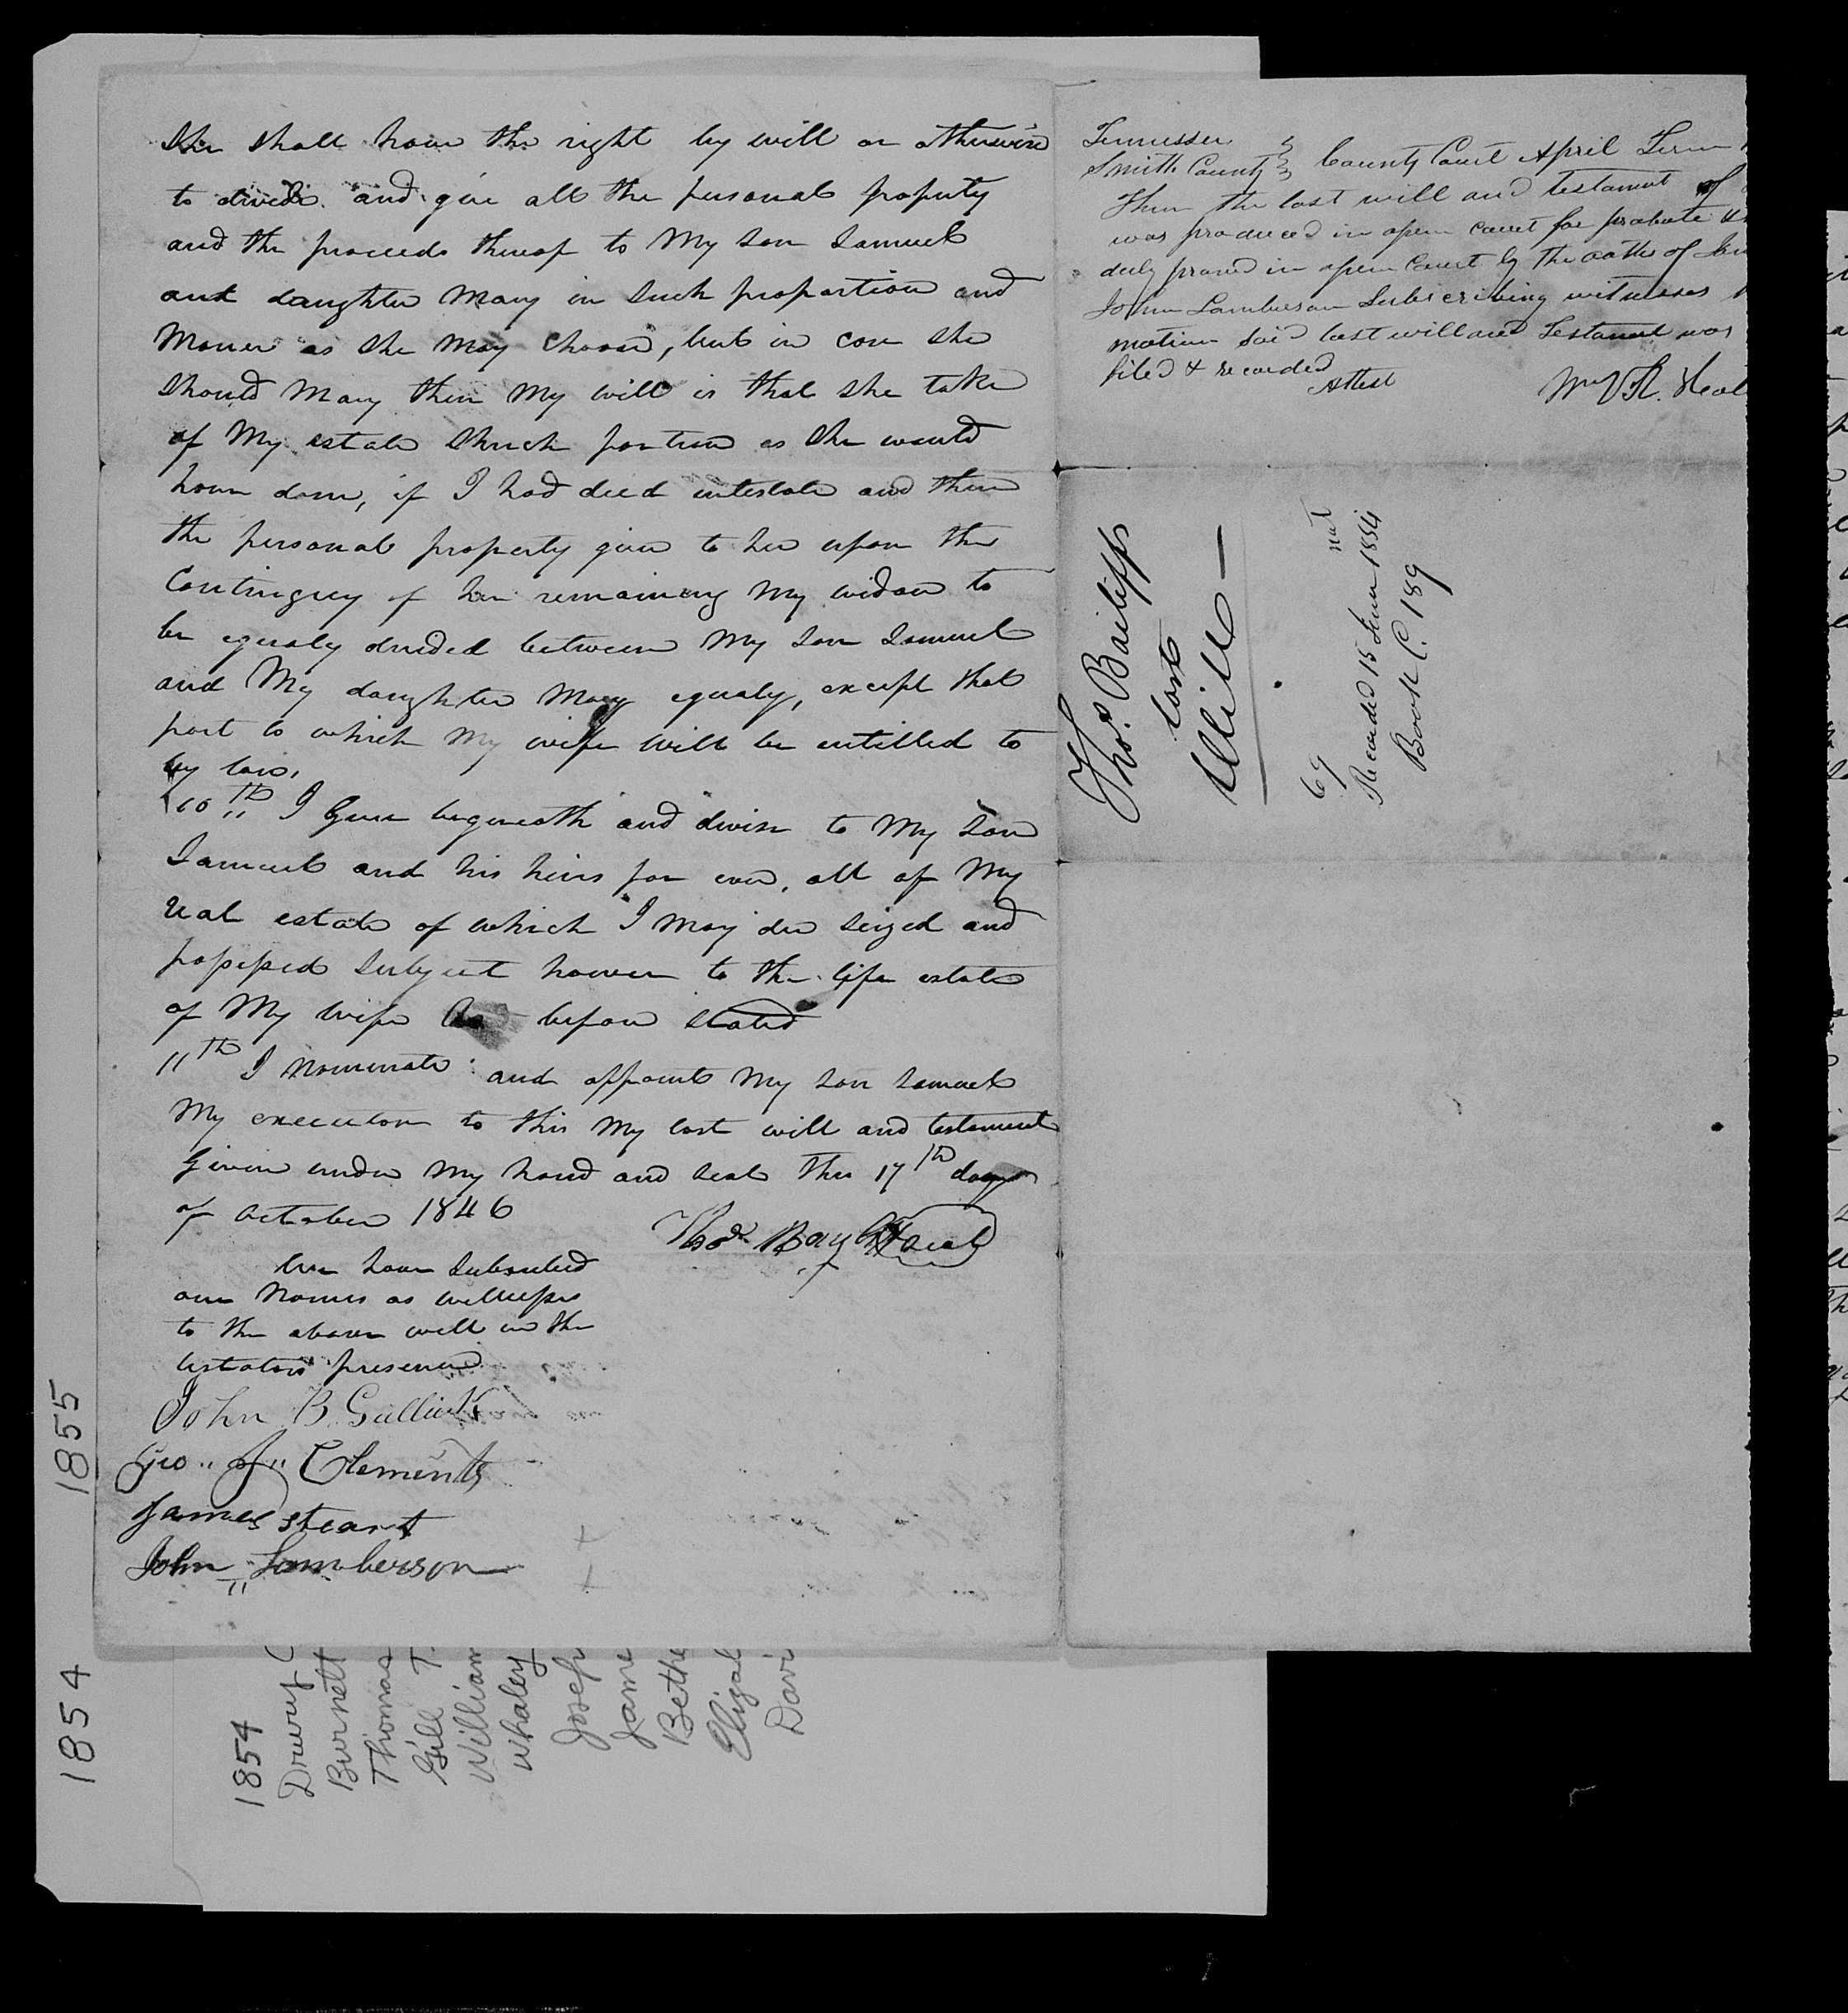 She shall have the right by will or otherwise
to divide and give all the personal property
and the proceeds thereof to My Son Samuel
and daughter Mary in such proportion and
Maner as she may choose, but in case she
should Mary then My will is that she take
of My estate Shuch portion as she would
have done, if I had died intestate and then
the personal property given to her upon the
Contingucy of her remaining My widow to
be equaly divided between My Son Samuel
and My daughter Mary equaly, except that
part to which My wife will be entitled to
by law,
10th I Give bequeath and devise to My Son
Samuel and his heirs for ever, all of My
real estate of which I may die seized and
possessed subject however to the life estate
of My wife as before stated
11th I nominate and appoint My son Samuel
My executor to this My last will and testament
Given under My hand and seal this 17th day
of October 1846
Thos Bayliff seal
We have Subscribed
our Names as witnesses
to the above will in the
testators presence
John B Gullick
Geo " J " Clements
James Steart
John Lamberson
Tennessee
Smith County County Court April Term
Then the last will and testament of
was produced in open court for probate &
duly proved in open Court by the oaths of
John Lamberson Subscribing witnesses
motion said last will and Testament was
filed & recorded
Attest
Wm V. R.
Thos. Bailiff
last
Will
69
Recorded 15 June 1854
Book C. 189
1855
1854
1854
Drury
Burnett
Thomas
Gill T.
William
Whaley
Joseph
Jame
Bethe
Elizab
Davi